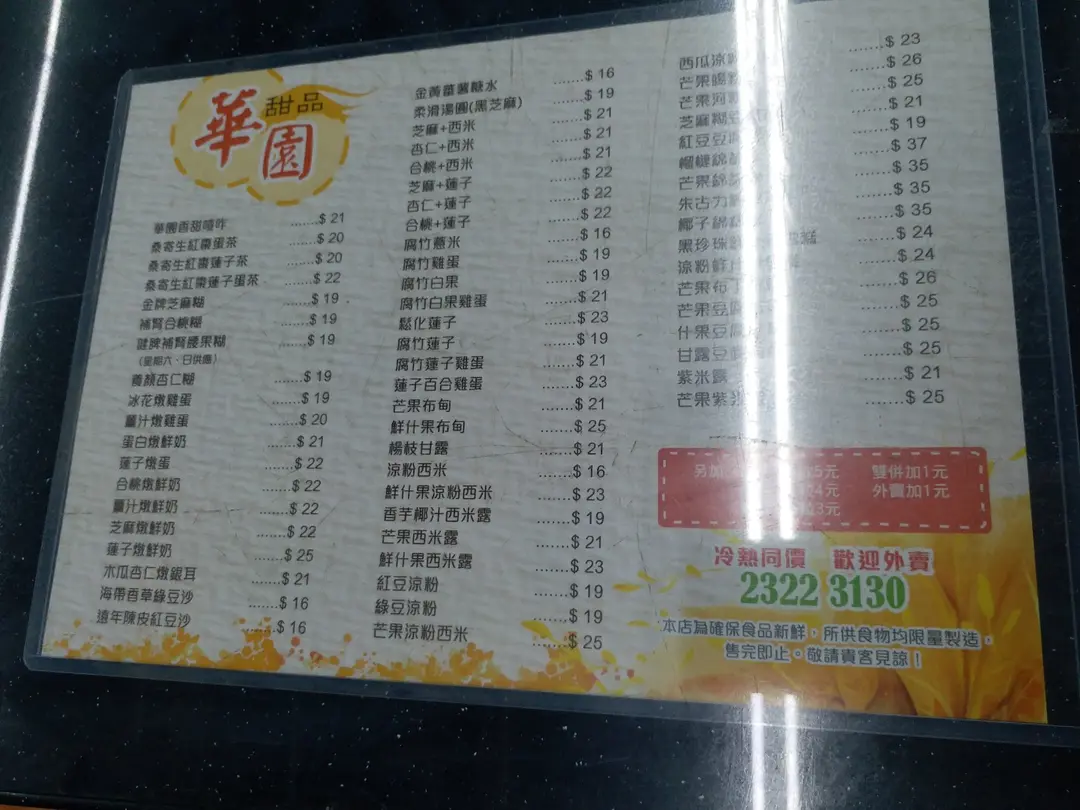 華園
甜品
華園香甜喳咋 ......$ 21
桑寄生紅棗蛋茶 ......$ 20
桑寄生紅棗蓮子茶 ......$ 20
桑寄生紅棗蓮子蛋茶 ......$ 22
金牌芝麻糊 ......$ 19
補腎合桃糊 ......$ 19
健脾補腎腰果糊 ......$ 19
(星期六、日供應)
養顏杏仁糊 ......$ 19
冰花燉雞蛋 ......$ 19
薑汁燉雞蛋 ......$ 20
蛋白燉鮮奶 ......$ 21
蓮子燉蛋 ......$ 22
合桃燉鮮奶 ......$ 22
薑汁燉鮮奶 ......$ 22
芝麻燉鮮奶 ......$ 22
蓮子燉鮮奶 ......$ 25
木瓜杏仁燉銀耳 ......$ 21
海帶香草綠豆沙 ......$ 16
遠年陳皮紅豆沙 ......$ 16
金黃蕃薯糖水 ......$ 16
柔滑湯圓(黑芝麻) ......$ 19
芝麻+西米 ......$ 21
杏仁+西米 ......$ 21
合桃+西米 ......$ 21
芝麻+蓮子 ......$ 22
杏仁+蓮子 ......$ 22
合桃+蓮子 ......$ 22
腐竹薏米 ......$ 16
腐竹雞蛋 ......$ 19
腐竹白果 ......$ 19
腐竹白果雞蛋 ......$ 21
鬆化蓮子 ......$ 23
腐竹蓮子 ......$ 19
腐竹蓮子雞蛋 ......$ 21
蓮子百合雞蛋 ......$ 23
芒果布甸 ......$ 21
鮮什果布甸 ......$ 25
楊枝甘露 ......$ 21
涼粉西米 ......$ 16
鮮什果涼粉西米 ......$ 23
香芋椰汁西米露 ......$ 19
芒果西米露 ......$ 21
鮮什果西米露 ......$ 23
紅豆涼粉 ......$ 19
綠豆涼粉 ......$ 19
芒果涼粉西米 ......$ 25
西瓜涼 .......$ 23
芒果 .......$ 26
芒果 .......$ 25
芝麻糊豆 .......$ 21
紅豆豆 .......$ 19
榴槤綿 .......$ 37
芒果綿 .......$ 35
朱古力 .......$ 35
椰子綿 .......$ 35
黑珍珠 .......$ 24
涼粉鮮 .......$ 24
芒果布 .......$ 26
芒果豆腐 .......$ 25
什果豆腐 .......$ 25
甘露豆 .......$ 25
紫米露 .......$ 21
芒果紫米 .......$ 25
另加 5元 雙併加1元
4元 外賣加1元
3元
冷熱同價 歡迎外賣
2322 3130
本店為確保食品新鮮，所供食物均限量製造，
售完即止。敬請貴客見諒！